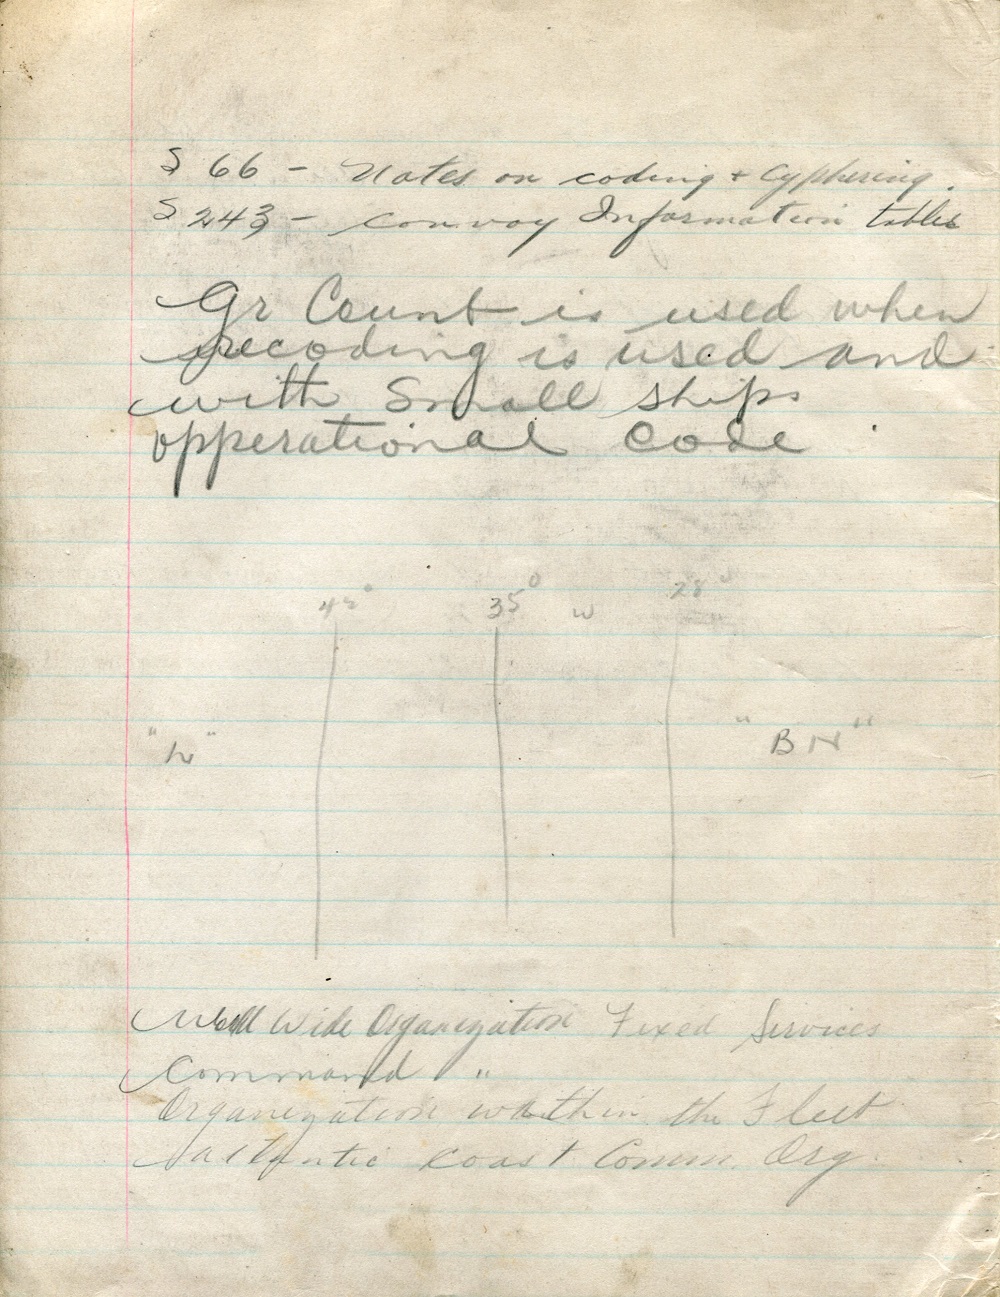 S 66 - Notes on coding + Cyphering.
S 243 - Convoy Information tables
Gr Count is used when
recoding is used and
with Small ships
opperational code
35° w 28°
"BN"
Wide Organization Fixed Services
Command "
Organization within the Fleet
Coast Comm. Org.